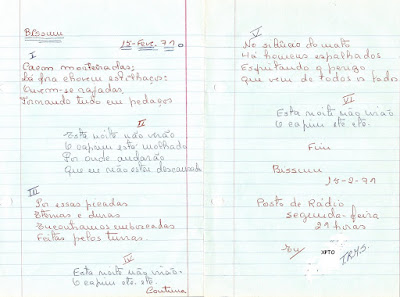 Bissum
15-Fev. 71
I
Caem morteiradas;
Lá fora chovem estilhaços;
Ouvem-se rajadas,
Tornando tudo em pedaços
II
Esta noite não virão
O capim está molhado
Por onde andarão
Que eu não estou descansado
III
Por essas picadas
Eternas e duras
Encontramos emboscadas
Feitas pelos turras.
IV
Esta noite não virão.
O capim etc. etc.
Continua
V
No silêncio do mato
Há homens espalhados
Espreitando o perigo
Que vem de todos os lados
VI
Esta noite não virão
O capim etc. etc.
Fim
Bissum
15-2-71
Posto de Rádio
segunda-feira
21 horas
XPTO
T.R.M.S.